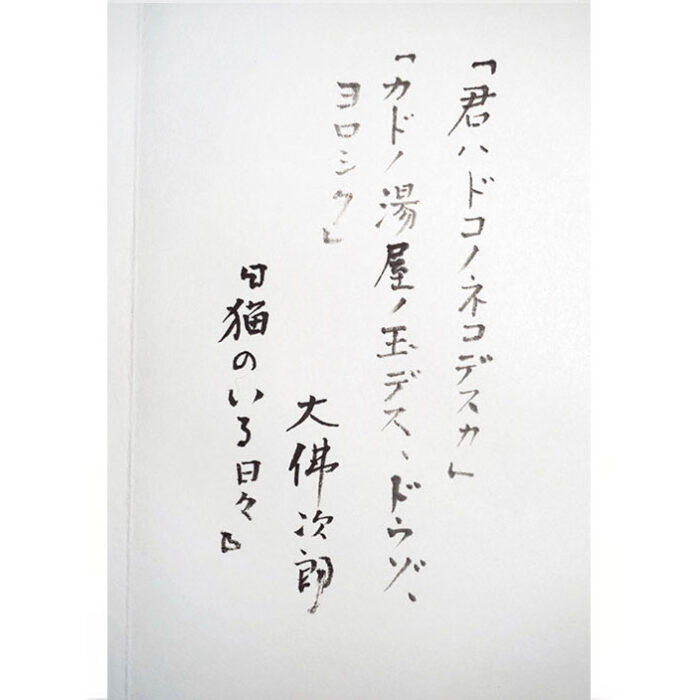 「君ハドコノネコデスカ」
「カドノ湯屋ノ玉デス、ドウゾ、
ヨロシク」
大佛次郎
『猫のいる日々』